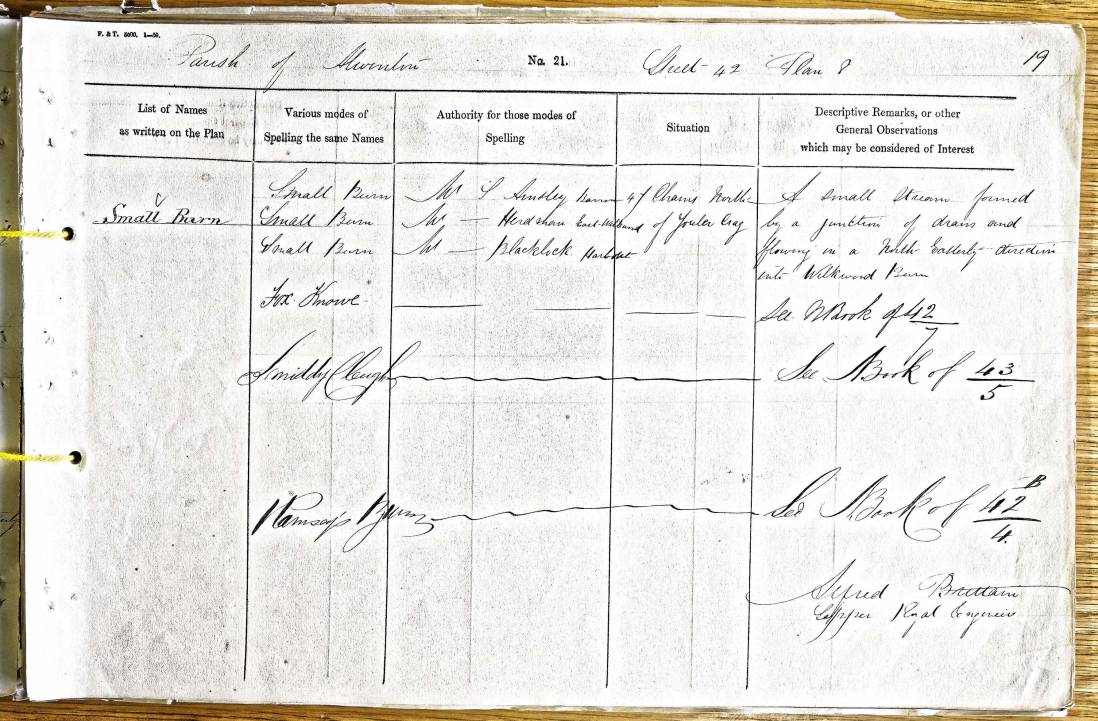 F. & T. 5000. 1—59.
Parish of Alwenton No. 21. Sheet 42 Plan 8 19
List of Names
as written on the Plan
Various modes of
Spelling the same Names
Authority for those modes of
Spelling
Situation
Descriptive Remarks, or other
General Observations
which may be considered of Interest
Small Burn
Small Burn
Small Burn
Small Burn
Mr Ainsley
Mr — Herdsman
Mr — Blacklock
47 Chains North
of Crag
A small Stream formed
by a junction of drains and
flowing in a North Easterly direction
into Wilkwood Burn
Fox Knowe
See N Book of 42/7
Smiddy Cleugh
See N Book of 43/5
Ramsey's Burn
See N Book of 42/4 B
Alfred Brittain
Sapper Royal Engineers